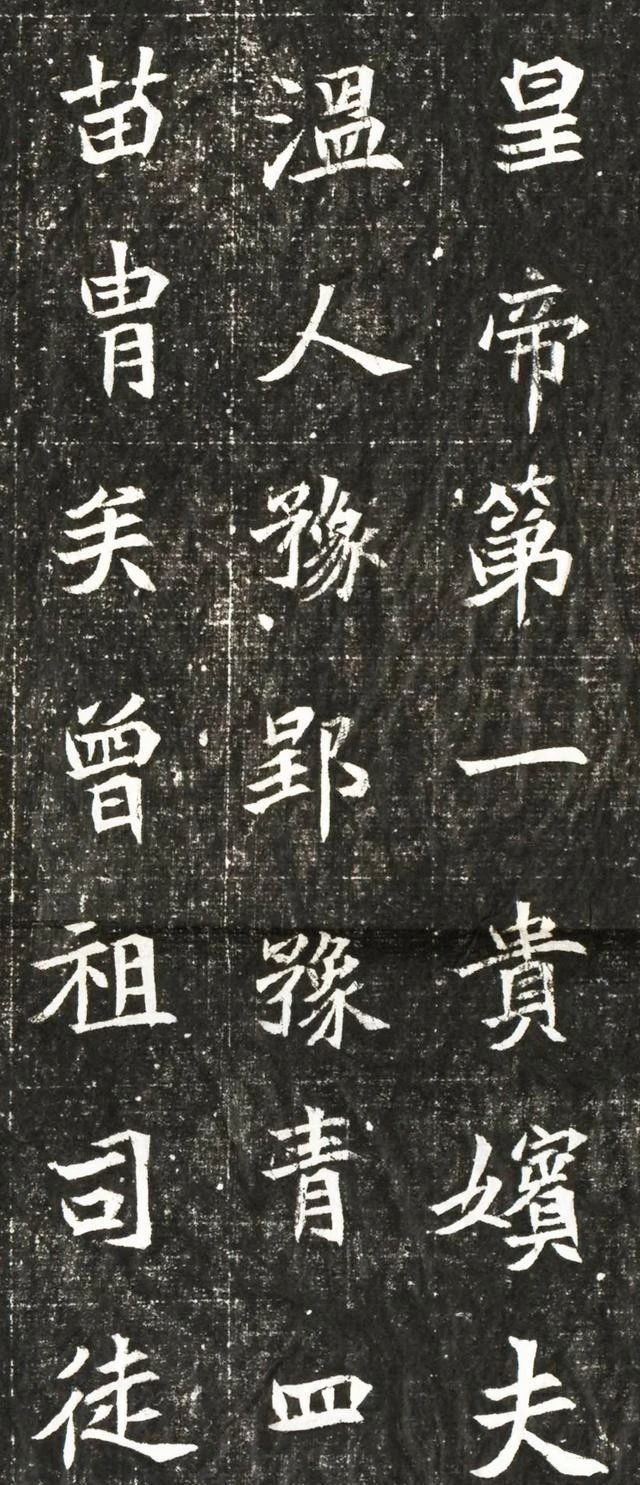 皇帝第一貴嬪夫
溫人豫郢豫青四
苗冑矣曾祖司徒